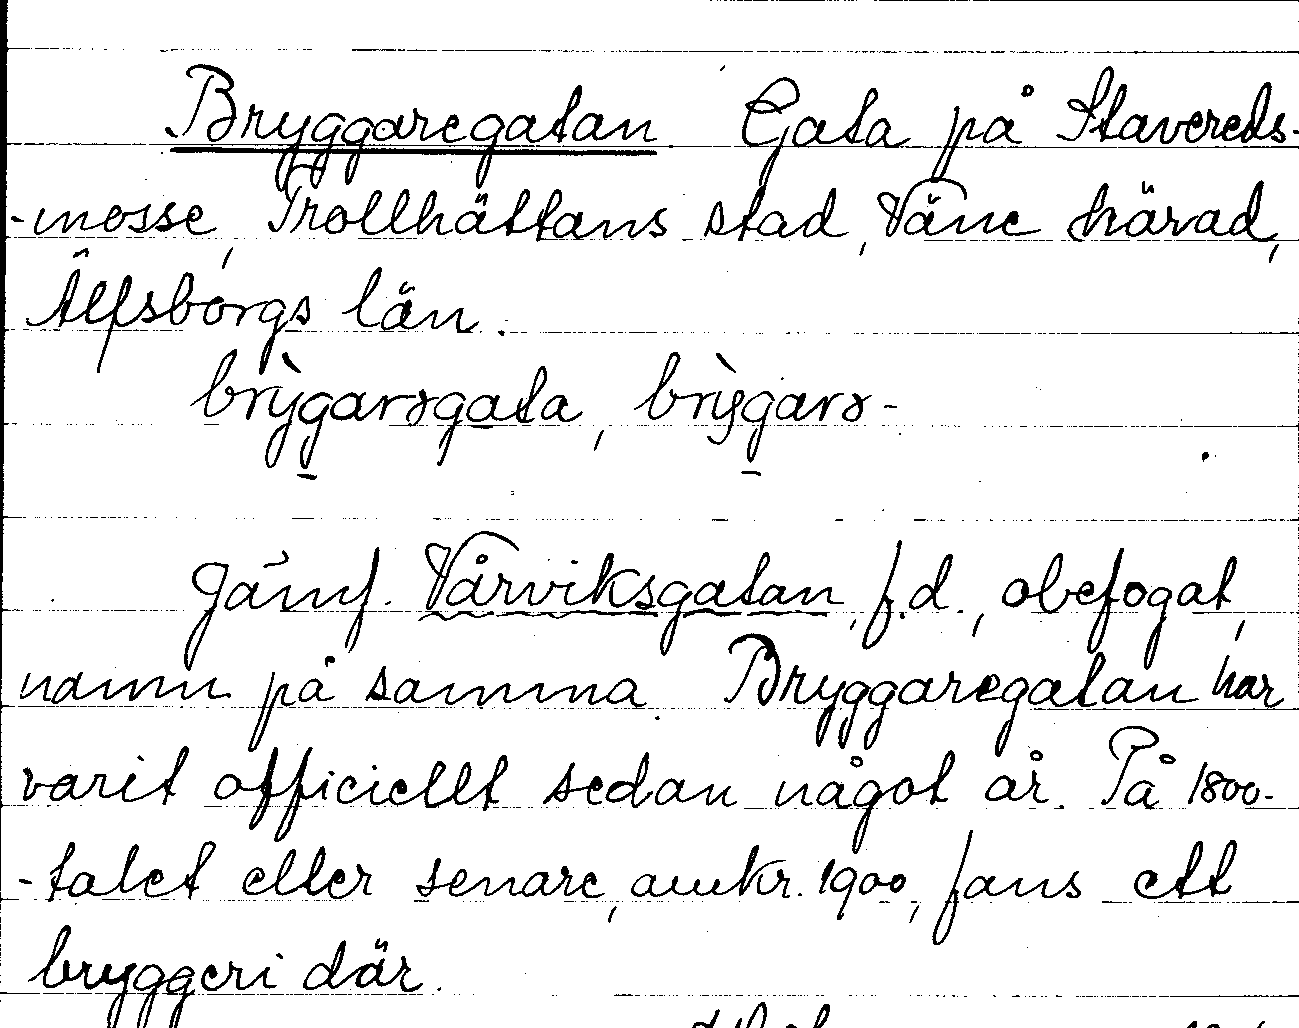 Bryggaregatan. Gata på Stavereds-
-mosse, Trollhättans stad, Väne härad,
Älfsborgs län.
brỳgarəgata, brỳgarə-
Jämf. Vårviksgatan, f.d., obefogat,
namn på samma. Bryggaregatan har
varit officiellt sedan något år. På 1800-
-talet eller senare, omkr. 1900, fans ett
bryggeri där.